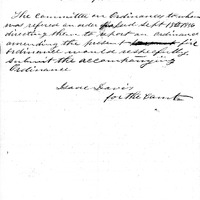 The Committee on Ordinances to whom
was referred an order passed Sept 18 1886
directing them to report an ordinance
amending the present fire
Ordinance would respectfully
submit the accompanying
Ordinance
Isaac Davis
for the Comte